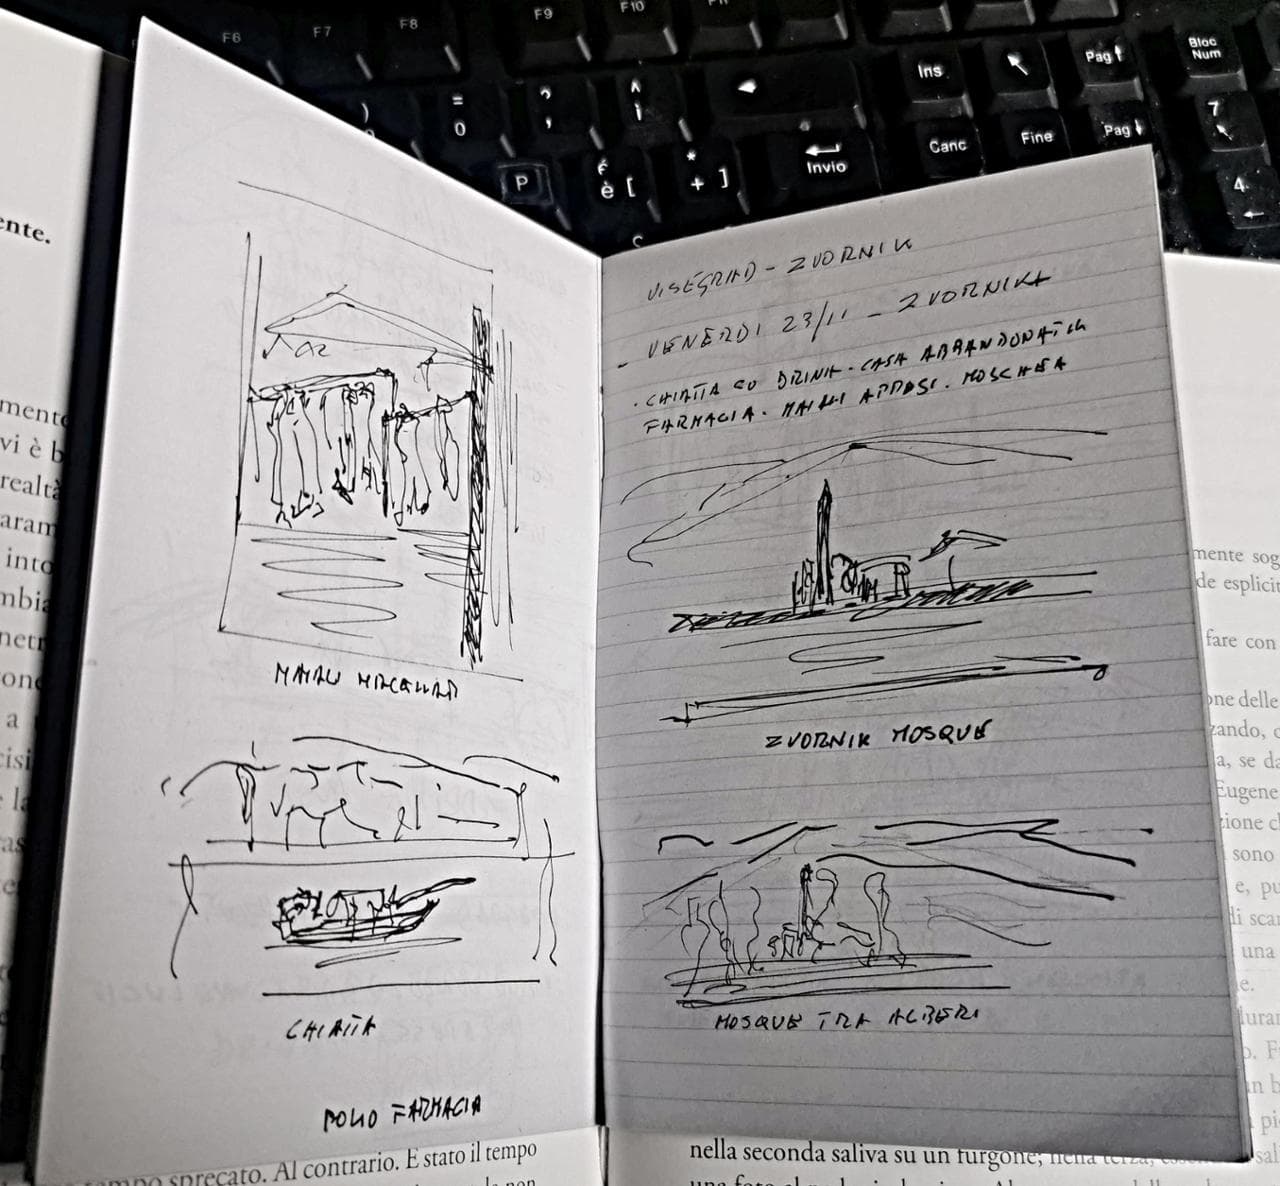 F6
F7
F8
F9
F10
F11
Ins
Pag
Bloc
Num
)
=
0
?
'
^
ì
Canc
Fine
Pag
7
4
P
é
è [
*
+ ]
Invio
MAIALI MACELLATI
CHIATTA
POLIO FARMACIA
VISEGRAD - ZVORNIK
- VENERDI 23/11 - ZVORNIK
. CHIATTA SU DRINA. CASA ABBANDONATA
FARMACIA. MAIALI APPESI. MOSCHEA
ZVORNIK MOSQUE
MOSQUE TRA ALBERI
ente.
mente
vi è b
realtà
aram
into
mbia
netr
a
sprecato. Al contrario. È stato il tempo
mente sog
de esplicit
fare con
one delle
zando, c
a, se da
Eugene
zione c
sono
e, pu
di scar
una
e.
durar
nella seconda saliva su un furgone; nella terza,